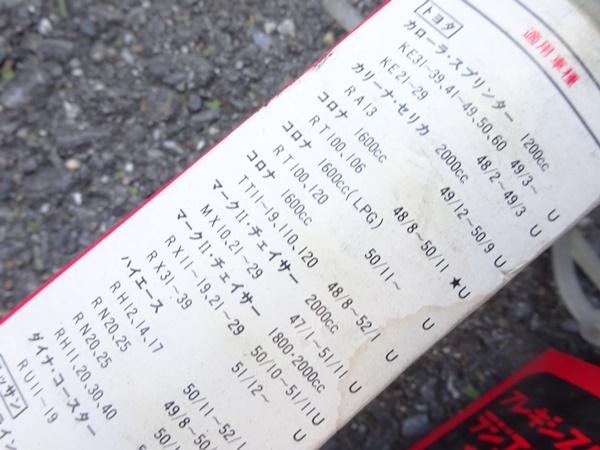 適用車種
トヨタ
カローラ・スプリンター 1200cc
KE31~39、41~49、50、60 49/3~ U
KE21~29 48/2~49/3 U
カリーナ・セリカ 2000cc
RA13 49/12~50/9 U
コロナ 1600cc
RT100、106 48/8~50/11 ★U
コロナ 1600cc(LPG)
RT100、120 50/11~ U
コロナ 1600cc
TT11~19、110、120 48/8~52/1 U
マークⅡ・チェイサー 2000cc
MX10、21~29 47/1~51/11 U
マークⅡ・チェイサー 1800・2000cc
RX11~19、21~29 50/10~51/11 U
RX31~39 51/12~ U
ハイエース
RH12、14、17
RN20、25 50/11~52/1
RN20、25 49/8~50/
ダイナ・コースター
RH11、20、30、40
RU11~19